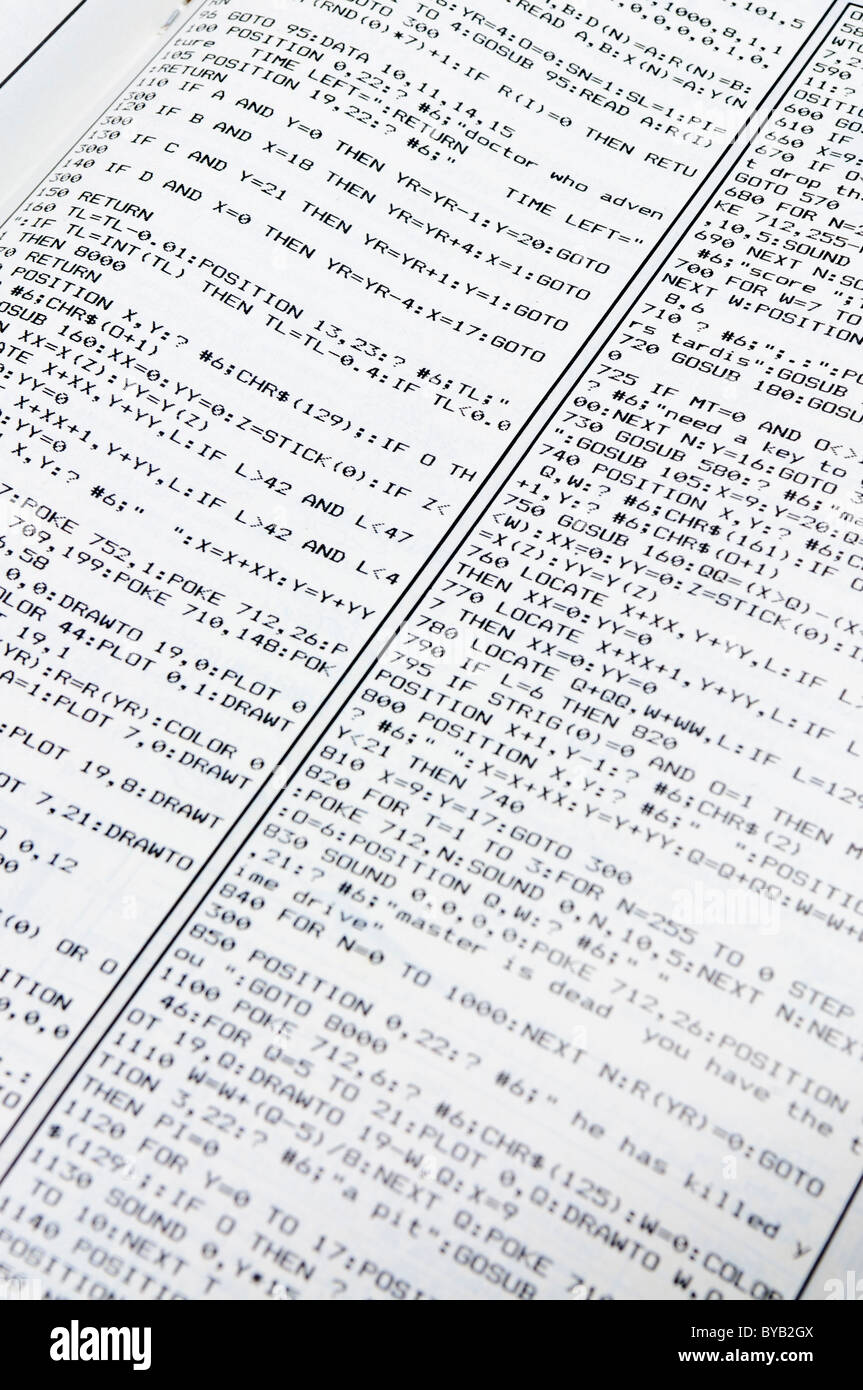 1000,8,1,1
96 GOTO 95:DATA 10,11,14,15
100 POSITION 0,22:? #6;"doctor who adven
ture TIME LEFT=":RETURN
105 POSITION 19,22:? #6;" TIME LEFT="
:RETURN
110 IF A AND Y=0 THEN YR=YR-1:Y=20:GOTO
300
120 IF B AND X=18 THEN YR=YR+4:X=1:GOTO
300
130 IF C AND Y=21 THEN YR=YR+1:Y=1:GOTO
300
140 IF D AND X=0 THEN YR=YR-4:X=17:GOTO
300
150 RETURN
160 TL=TL-0.01:POSITION 13,23:? #6;TL;"
":IF TL=INT(TL) THEN TL=TL-0.4:IF TL<0.0
THEN 8000
70 RETURN
POSITION X,Y:? #6;CHR$(129);:IF O TH
#6;CHR$(O+1)
OSUB 160:XX=0:YY=0:Z=STICK(0):IF Z<
N XX=X(Z):YY=Y(Z)
CATE X+XX,Y+YY,L:IF L>42 AND L<47
0:YY=0
X+XX+1,Y+YY,L:IF L>42 AND L<4
0:YY=0
X,Y:? #6;" ":X=X+XX:Y=Y+YY
7:POKE 752,1:POKE 712,26:P
709,199:POKE 710,148:POK
6,58
0,0:DRAWTO 19,0:PLOT 0
OLOR 44:PLOT 0,1:DRAWT
T 19,1
(YR):R=R(YR):COLOR 0
A=1:PLOT 7,0:DRAWT
:PLOT 19,8:DRAWT
OT 7,21:DRAWTO
0,12
(0) OR O
ITION
590
600 GO
610 IF
660 X=9:
670 IF O
t drop th
GOTO 570
680 FOR N=2
KE 712,255-
,10,5:SOUND
690 NEXT N:SO
#6;"score ";
700 FOR W=7 TO
NEXT W:POSITION
8,6
710 ? #6;":.:":PO
rs tardis":GOSUB
720 GOSUB 180:GOSU
0
725 IF MT=0 AND O<>
? #6;"need a key to
00:NEXT N:Y=16:GOTO 3
730 GOSUB 580:? #6;"ma
":GOSUB 105:X=9:Y=20:Q=
740 POSITION X,Y:? #6;C
Q,W:? #6;CHR$(161):IF O
+1,Y:? #6;CHR$(O+1)
750 GOSUB 160:QQ=(X>Q)-(X
<W):XX=0:YY=0:Z=STICK(0):I
=X(Z):YY=Y(Z)
760 LOCATE X+XX,Y+YY,L:IF L
THEN XX=0:YY=0
770 LOCATE X+XX+1,Y+YY,L:IF L
7 THEN XX=0:YY=0
780 LOCATE Q+QQ,W+WW,L:IF L=129
790 IF L=6 THEN 820
795 IF STRIG(0)=0 AND O=1 THEN M
POSITION X+1,Y-1:? #6;CHR$(2)
800 POSITION X,Y:? #6;" ":POSITIO
? #6;" ":X=X+XX:Y=Y+YY:Q=Q+QQ:W=W+W
Y<21 THEN 740
810 X=9:Y=17:GOTO 300
820 FOR T=1 TO 3:FOR N=255 TO 0 STEP
:POKE 712,N:SOUND 0,N,10,5:NEXT N:NEX
:O=6:POSITION Q,W:? #6;" "
830 SOUND 0,0,0,0:POKE 712,26:POSITION
,21:? #6;"master is dead you have the t
ime drive"
840 FOR N=0 TO 1000:NEXT N:R(YR)=0:GOTO
300
850 POSITION 0,22:? #6;" he has killed y
ou ":GOTO 8000
1100 POKE 712,6:? #6;CHR$(125):W=0:COLOR
46:FOR Q=5 TO 21:PLOT 0,Q:DRAWTO W,Q
OT 19,Q:DRAWTO 19-W,Q:X=9
1110 W=W+(Q-5)/8:NEXT Q:POKE 710
TION 3,22:? #6;"a pit":GOSUB
THEN PI=0
1120 FOR Y=0 TO 17:POSI
$(129);:IF O THEN ?
1130 SOUND 0,Y*15
TO 10:NEXT T
1140 POSITIO
POSITION
alamy
Image ID: BYB2GX
www.alamy.com